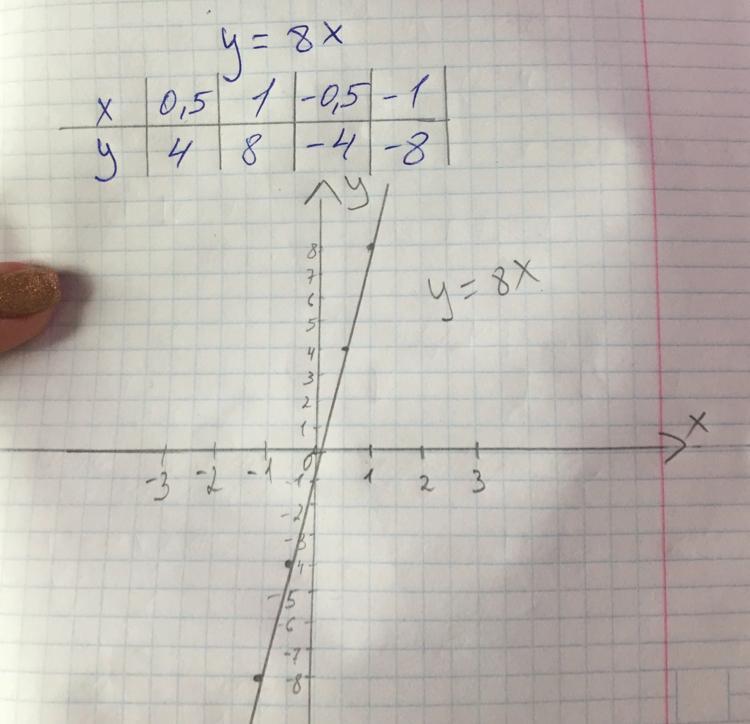 y = 8x
x 0,5 1 -0,5 -1
y 4 8 -4 -8
y
8
7
6
5
4
3
2
1
y = 8x
x
-3 -2 -1 0 1 2 3
-1
-2
-3
-4
-5
-6
-7
-8